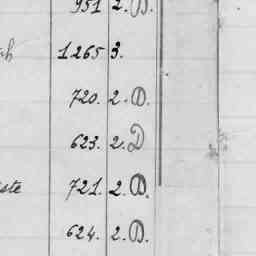 951 2. D.
1265 3.
720. 2. D.
623. 2. D
721. 2. D.
624. 2. D.